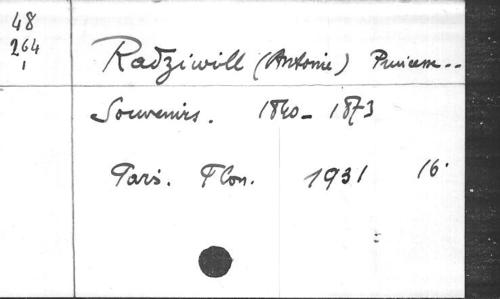 48
264
1
Radziwill (Antonie) Princesse..
Souvenirs. 1840-1873
Paris. Plon. 1931 16°